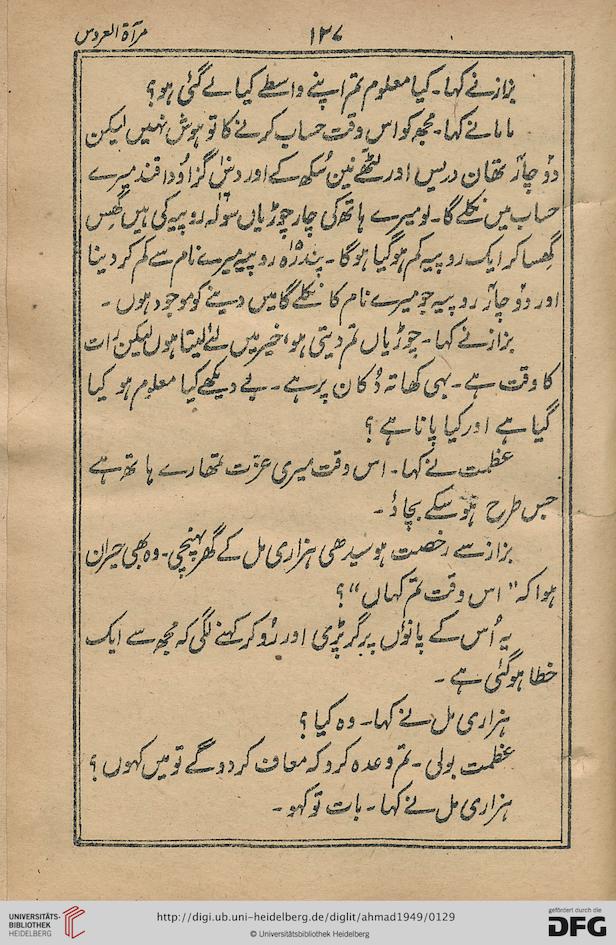 مرآة العروس
۱۲۷
بزاز نے کہا۔ کیا معلوم تم اپنے واسطے کیا لے گئی ہو؟
ماما نے کہا۔ مجھ کو اس وقت حساب کرنے کا تو ہوش نہیں لیکن
دو چار تھان دریس اور لٹھے نین سُکھ کے اور دس گز اودا قند میرے
حساب میں نکلے گا۔ لو میرے ہاتھ کی چار چوڑیاں سولہ روپیہ کی ہیں گھِس
گھِسا کر ایک روپیہ کم ہو گیا ہو گا۔ پندرہ روپیہ میرے نام سے کم کر دینا
اور دو چار روپیہ جو میرے نام کا نکلے گا میں دینے کو موجود ہوں۔
بزاز نے کہا۔ چوڑیاں تم دیتی ہو، خیر میں لئے لیتا ہوں لیکن رات
کا وقت ہے۔ بہی کھاتہ دُکان پر ہے۔ بے دیکھے کیا معلوم ہو کیا
گیا ہے اور کیا پانا ہے؟
عظمت نے کہا۔ اس وقت میری عزّت تمھارے ہاتھ ہے
جس طرح ہو سکے بچاؤ۔
بزاز سے رخصت ہو سیدھی ہزاری مل کے گھر پہنچی۔ وہ بھی حیران
ہوا کہ "اس وقت تم کہاں"؟
یہ اُس کے پانوٗں پر گر پڑی اور رو کر کہنے لگی کہ مجھ سے ایک
خطا ہو گئی ہے۔
ہزاری مل نے کہا۔ وہ کیا؟
عظمت بولی۔ تم وعدہ کرو کہ معاف کر دو گے تو میں کہوں؟
ہزاری مل نے کہا۔ بات تو کہو۔
UNIVERSITÄTS-
BIBLIOTHEK
HEIDELBERG
http://digi.ub.uni-heidelberg.de/diglit/ahmad1949/0129
© Universitätsbibliothek Heidelberg
gefördert durch die
DFG